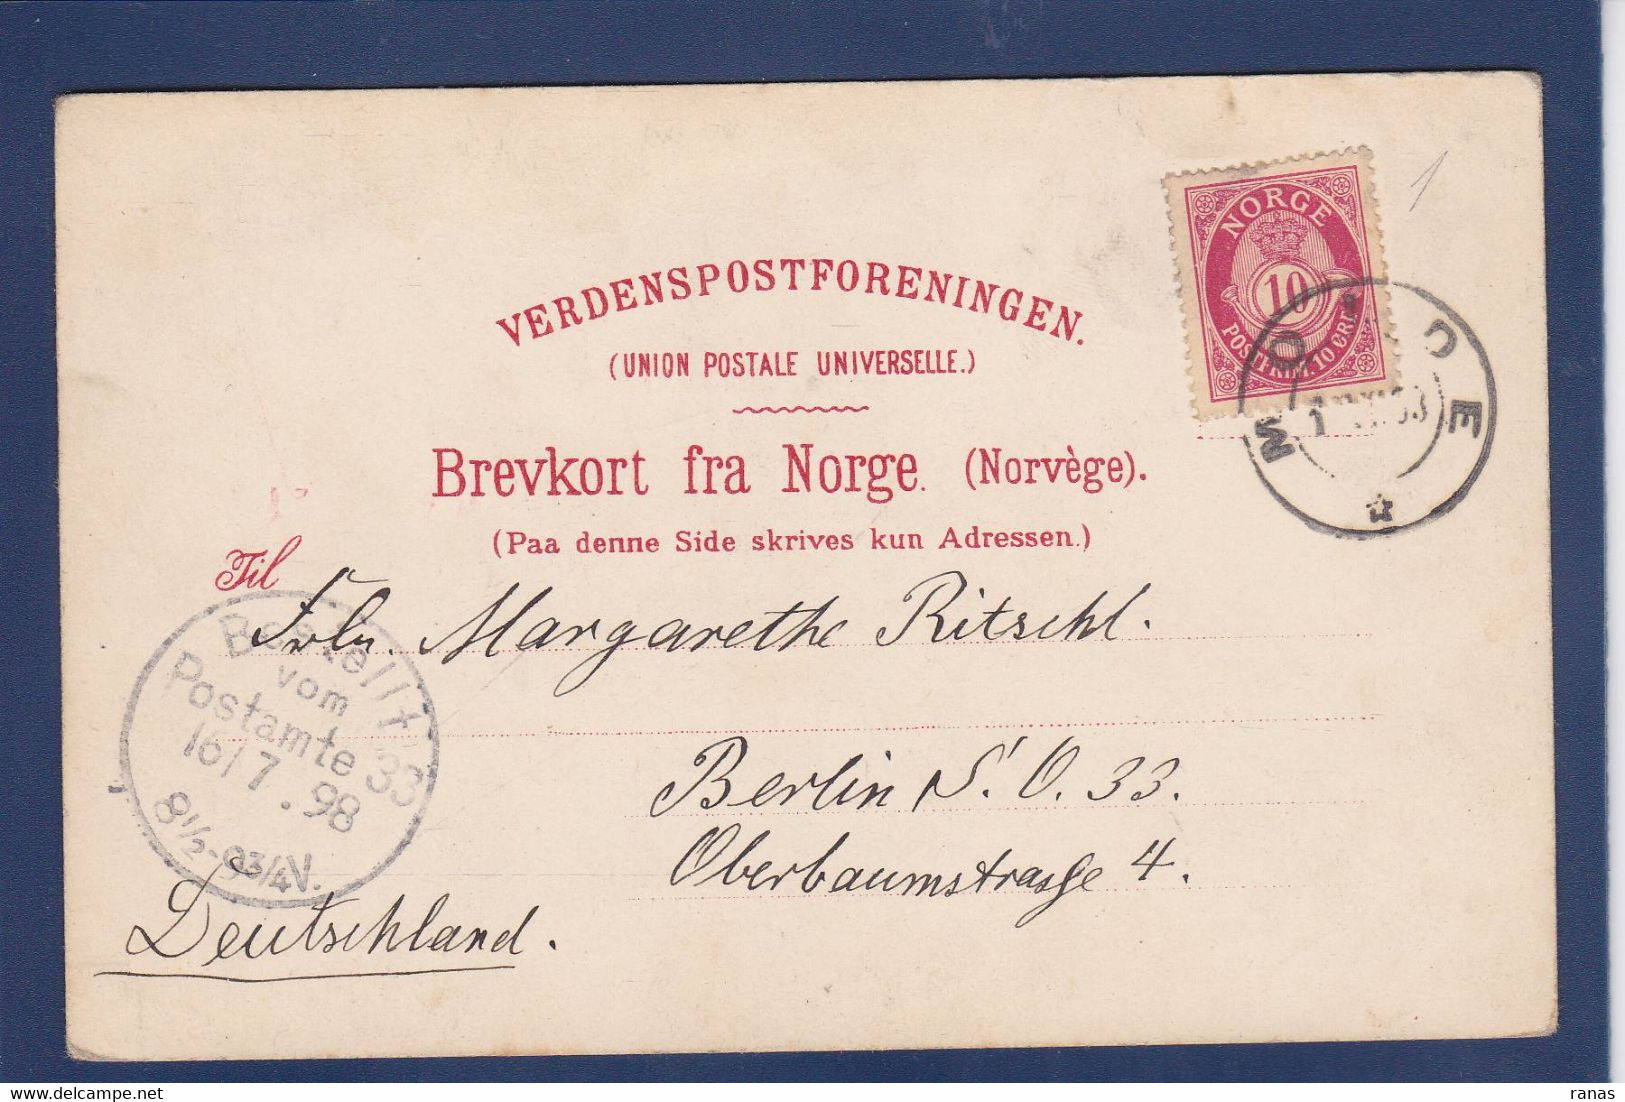 NORGE
10
POSTFRIM. 10 ØRE
VERDENSPOSTFORENINGEN.
(UNION POSTALE UNIVERSELLE.)
MOLDE
Brevkort fra Norge. (Norvège).
(Paa denne Side skrives kun Adressen.)
Til
Frln. Margarethe Ritschl.
Bestellt
vom
Postamte 33
16/7.98
8½-9¾V.
Berlin S.O. 33.
Oberbaumstrasse 4.
Deutschland.
1
delcampe.net
ranas